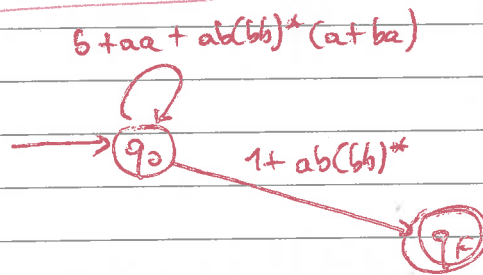 b + aa + ab(bb)* (a + ba)
q0
1 + ab(bb)*
qF